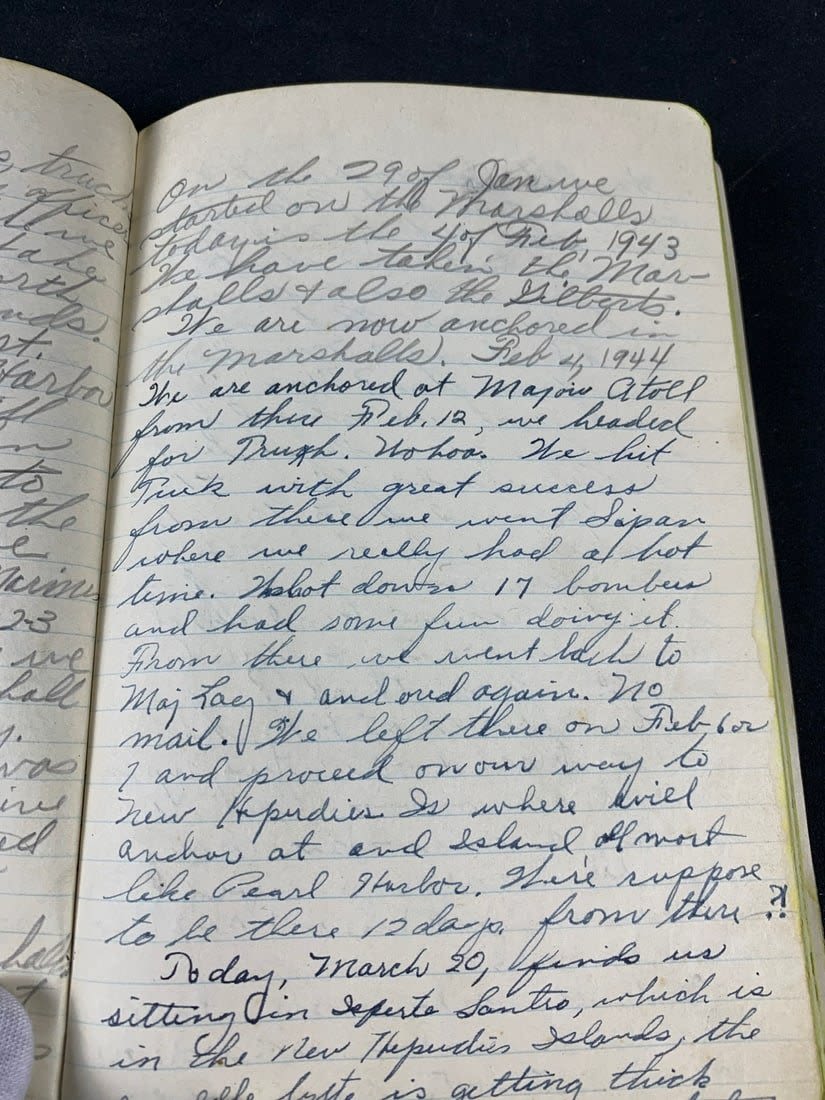 truck
office
we
take
orth
nds.
st.
Harbor
on
to
the
marines
2-3
we
hall
was
ed
On the 29 of Jan we
started on the Marshalls
today is the 4 of Feb, 1943
We have taken the Mar-
shalls & also the Gilberts.
We are now anchored in
the Marshalls. Feb 4, 1944
We are anchored at Majow Atoll
from there Feb. 12, we headed
for Trukh. Wohoo. We hit
Truk with great success
from there we went Sipan
where we really had a hot
time. shot down 17 bombers
and had some fun doing it.
From there we went back to
Maj Lag & anchored again. No
mail. We left there on Feb 6 or
7 and proceed on our way to
New Hepudies Is where will
anchor at and Island almost
like Pearl Harbor. We're suppose
to be there 12 days. from there ?!
Today, March 20, finds us
sitting in Esperto Santro, which is
in the New Hepudies Islands, the
is getting thick